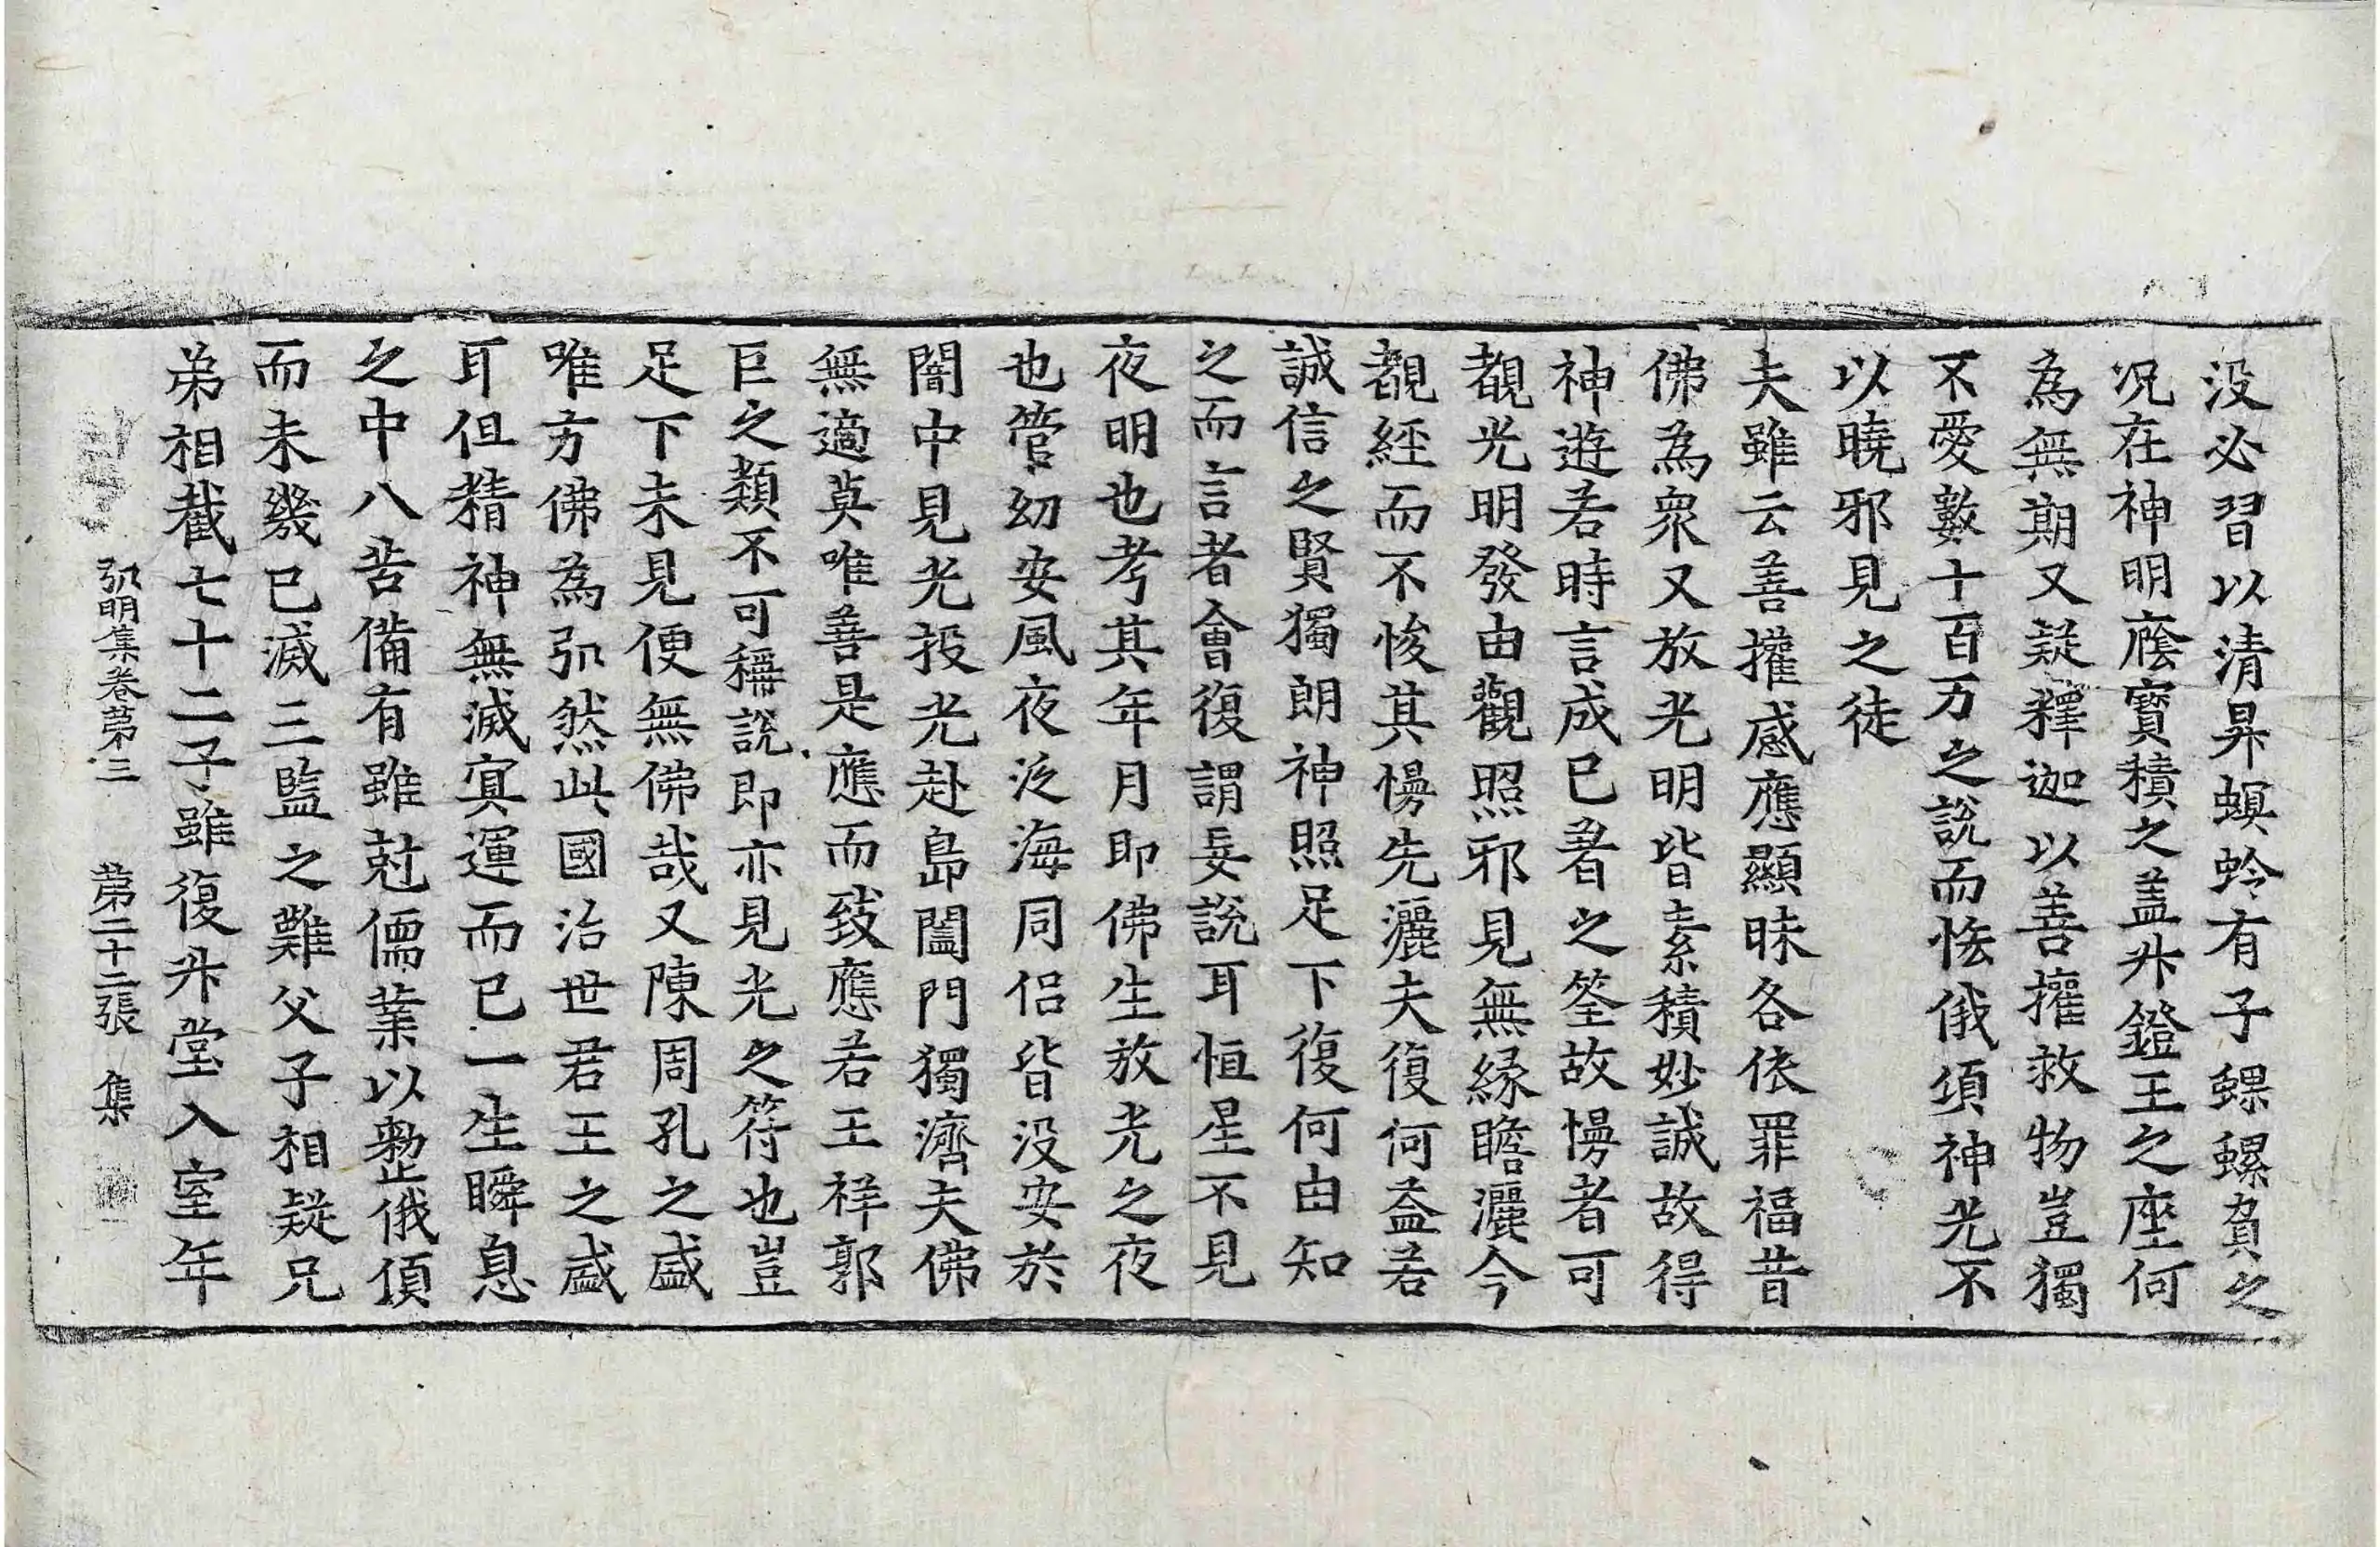 没必習以清昇螟蛉有子蜾蠃負之
况在神明廕寶積之盖升鐙王之座何
為無期又疑釋迦以善權救物豈獨
不愛數十百万之說而恡俄頃神光不
以曉邪見之徒
夫雖云善權感應顯昧各依罪福昔
佛為衆又放光明皆素積妙誠故得
神遊若時言成已著之筌故慢者可
覩光明發由觀照邪見無緣瞻灑今
覩經而不悛其慢先灑夫復何益若
誠信之賢獨朗神照足下復何由知
之而言者會復謂妄說耳恒星不見
夜明也考其年月即佛生放光之夜
也管幼安風夜泛海同侣皆没安於
闇中見光投光赴島闔門獨濟夫佛
無適莫唯善是應而致應若王祥郭
巨之類不可稱說即亦見光之符也豈
足下未見便無佛哉又陳周孔之盛
唯方佛為弘然此國治世君王之盛
耳但精神無滅冥運而已一生瞬息
之中八苦備有雖尅儒業以整俄頃
而未幾已滅三監之難父子相疑兄
弟相戮七十二子雖復升堂入室年
弘明集卷第三　第二十二張　集